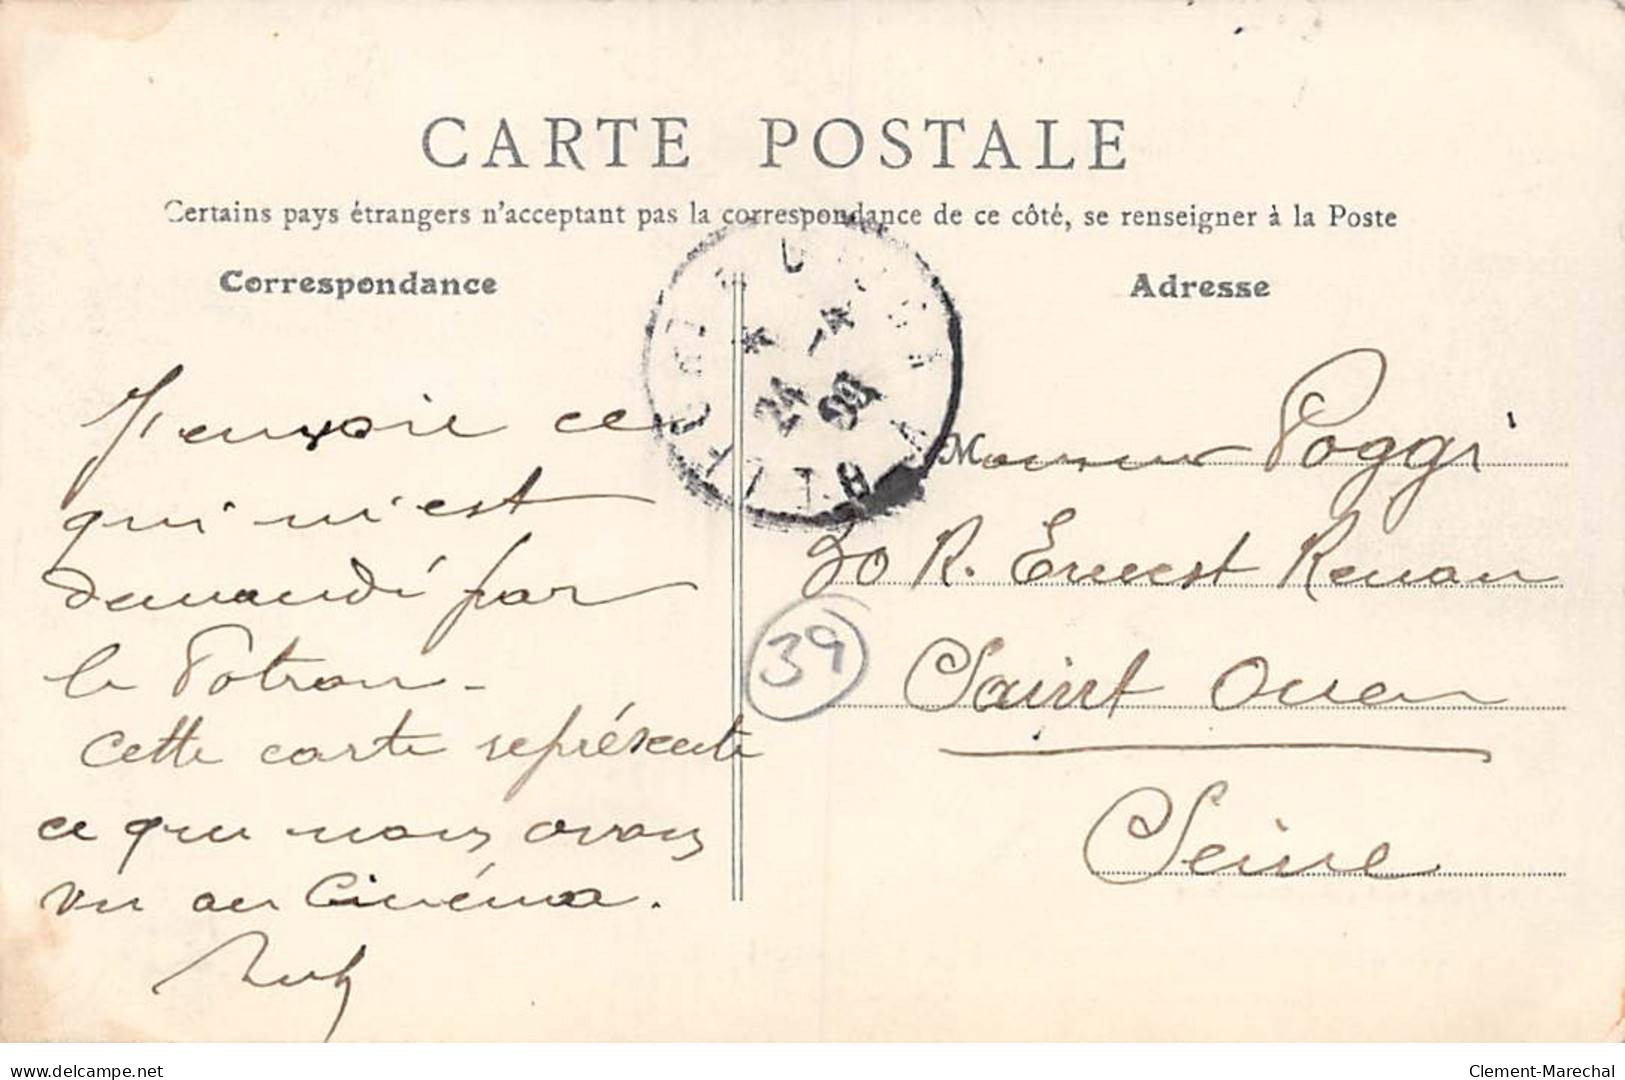 CARTE POSTALE
Certains pays étrangers n'acceptant pas la correspondance de ce côté, se renseigner à la Poste
Correspondance
J'envoie ce
qui m'est
demandé par
le Patron -
Cette carte représente
ce que nous avons
vu au Cinéma.
Adresse
Monsieur Poggi
30 R. Ernest Renan
Saint Ouen
Seine
39
24 - 4
09
delcampe.net
Clement-Marechal